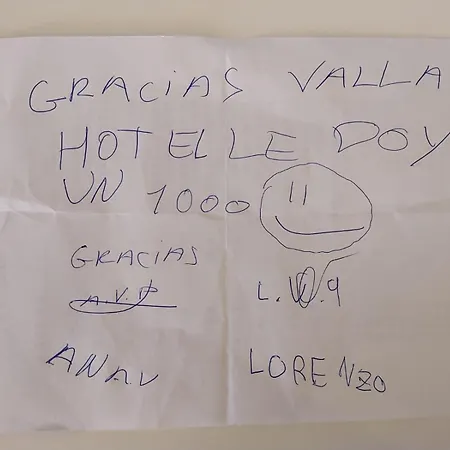 GRACIAS VALLA
HOTEL LE DOY
UN 1000
GRACIAS
A.V.P
L.V.9
ANAV
LORENZO